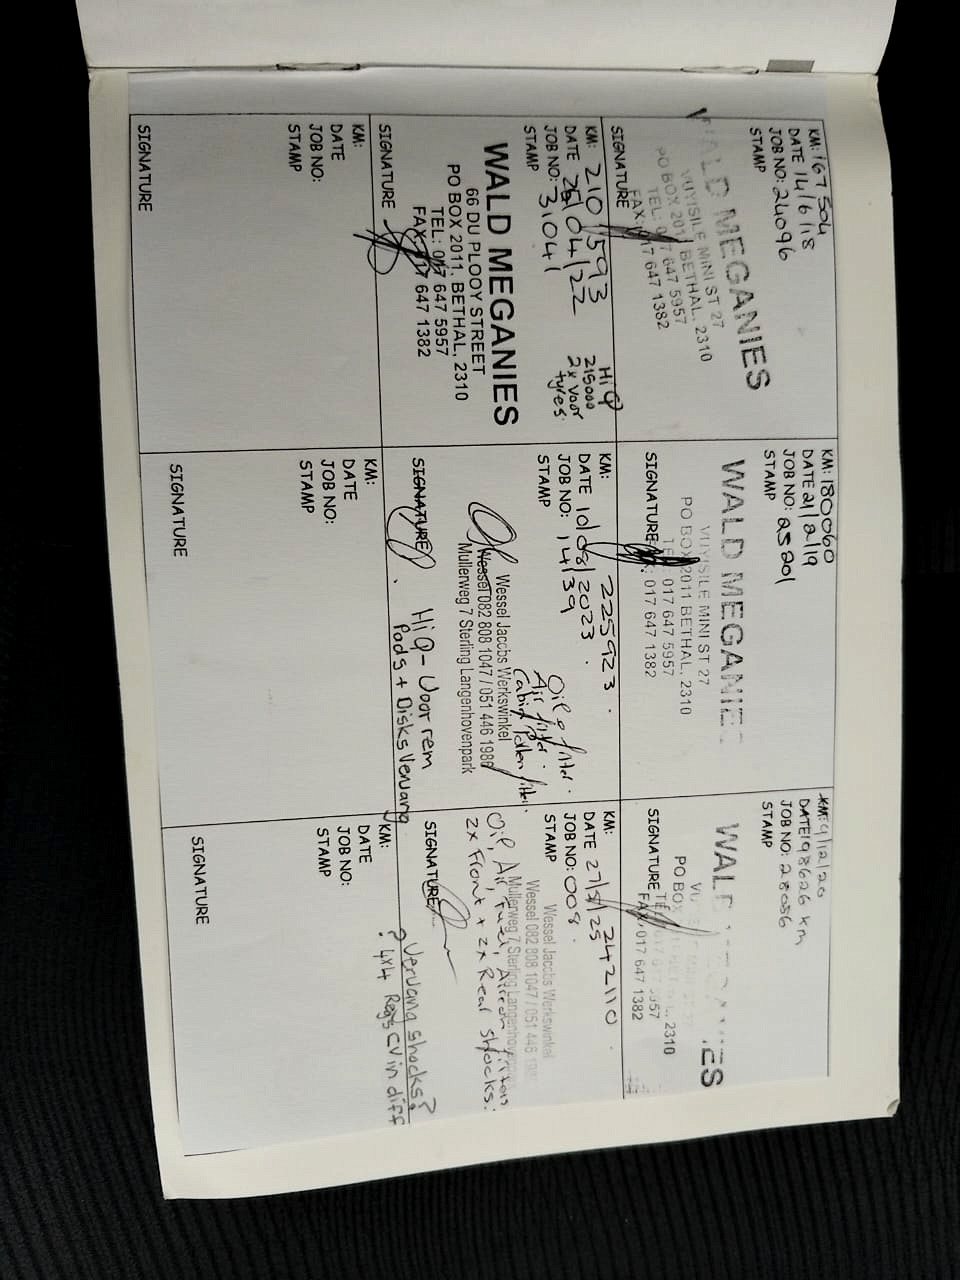 KM: 167504
DATE 14/6/18
JOB NO: 24096
STAMP
WALD MEGANIES
VUYISILE MINI ST 27
PO BOX 2011 BETHAL, 2310
TEL: 017 647 5957
FAX: 017 647 1382
SIGNATURE
KM: 180060
DATE 21/2/19
JOB NO: 25201
STAMP
WALD MEGANIE
VUYISILE MINI ST 27
PO BOX 2011 BETHAL, 2310
TEL: 017 647 5957
017 647 1382
SIGNATURE
KM: 9/12/20
DATE 198626 km
JOB NO: 28056
STAMP
WALD MEGANIES
PO BOX 2310
TEL 017 647 5957
FAX 017 647 1382
SIGNATURE
KM: 210593
DATE 26/04/22
JOB NO: 31041
STAMP
HiQ
215000
2x Voor
tyres.
WALD MEGANIES
66 DU PLOOY STREET
PO BOX 2011, BETHAL, 2310
TEL: 017 647 5957
FAX: 017 647 1382
SIGNATURE
KM: 225923.
DATE 10/08/2023.
JOB NO: 14139
STAMP
Oil & filter.
Air filter.
Cabin Pollen filter.
Wessel Jacobs Werkswinkel
Wessel 082 808 1047 / 051 446 1986
Mullerweg 7 Sterling Langenhovenpark
SIGNATURE
HiQ - Voor rem
Pads + Disks Vervang
KM: 242110.
DATE 27/5/25
JOB NO: 008.
STAMP
Wessel Jacobs Werkswinkel
Wessel 082 808 1047 / 051 446 198
Mullerweg 7 Sterling Langenhovenpark
Oil, Air, Fuel, Aircon filters
2x Front + 2x Rear Shocks.
SIGNATURE
? Vervang shocks?
? 4x4 Regs CV in diff
KM:
DATE
JOB NO:
STAMP
SIGNATURE
KM:
DATE
JOB NO:
STAMP
SIGNATURE
KM:
DATE
JOB NO:
STAMP
SIGNATURE